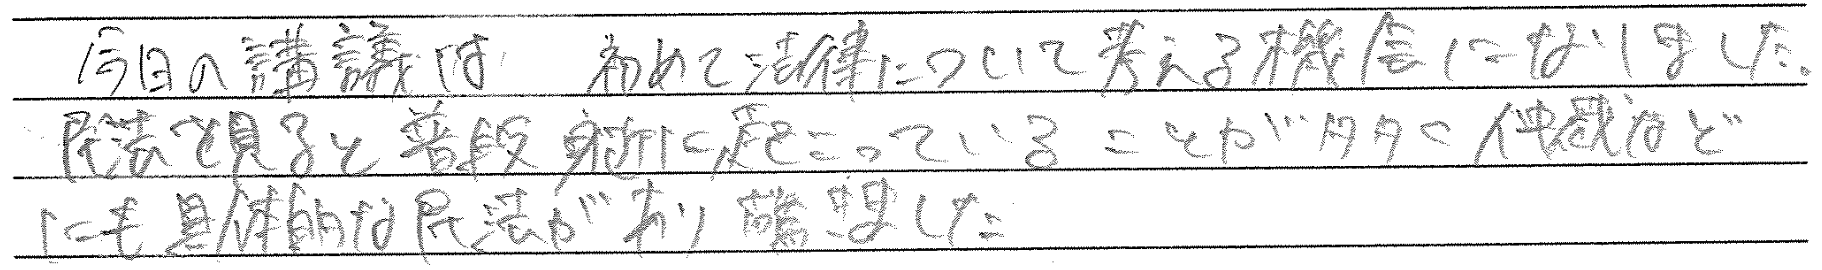 今日の講議は 初めて法律について考える機会になりました。
民法で見ると普段身近に起こっていることが多々で
にも具体的な民法があり驚ました